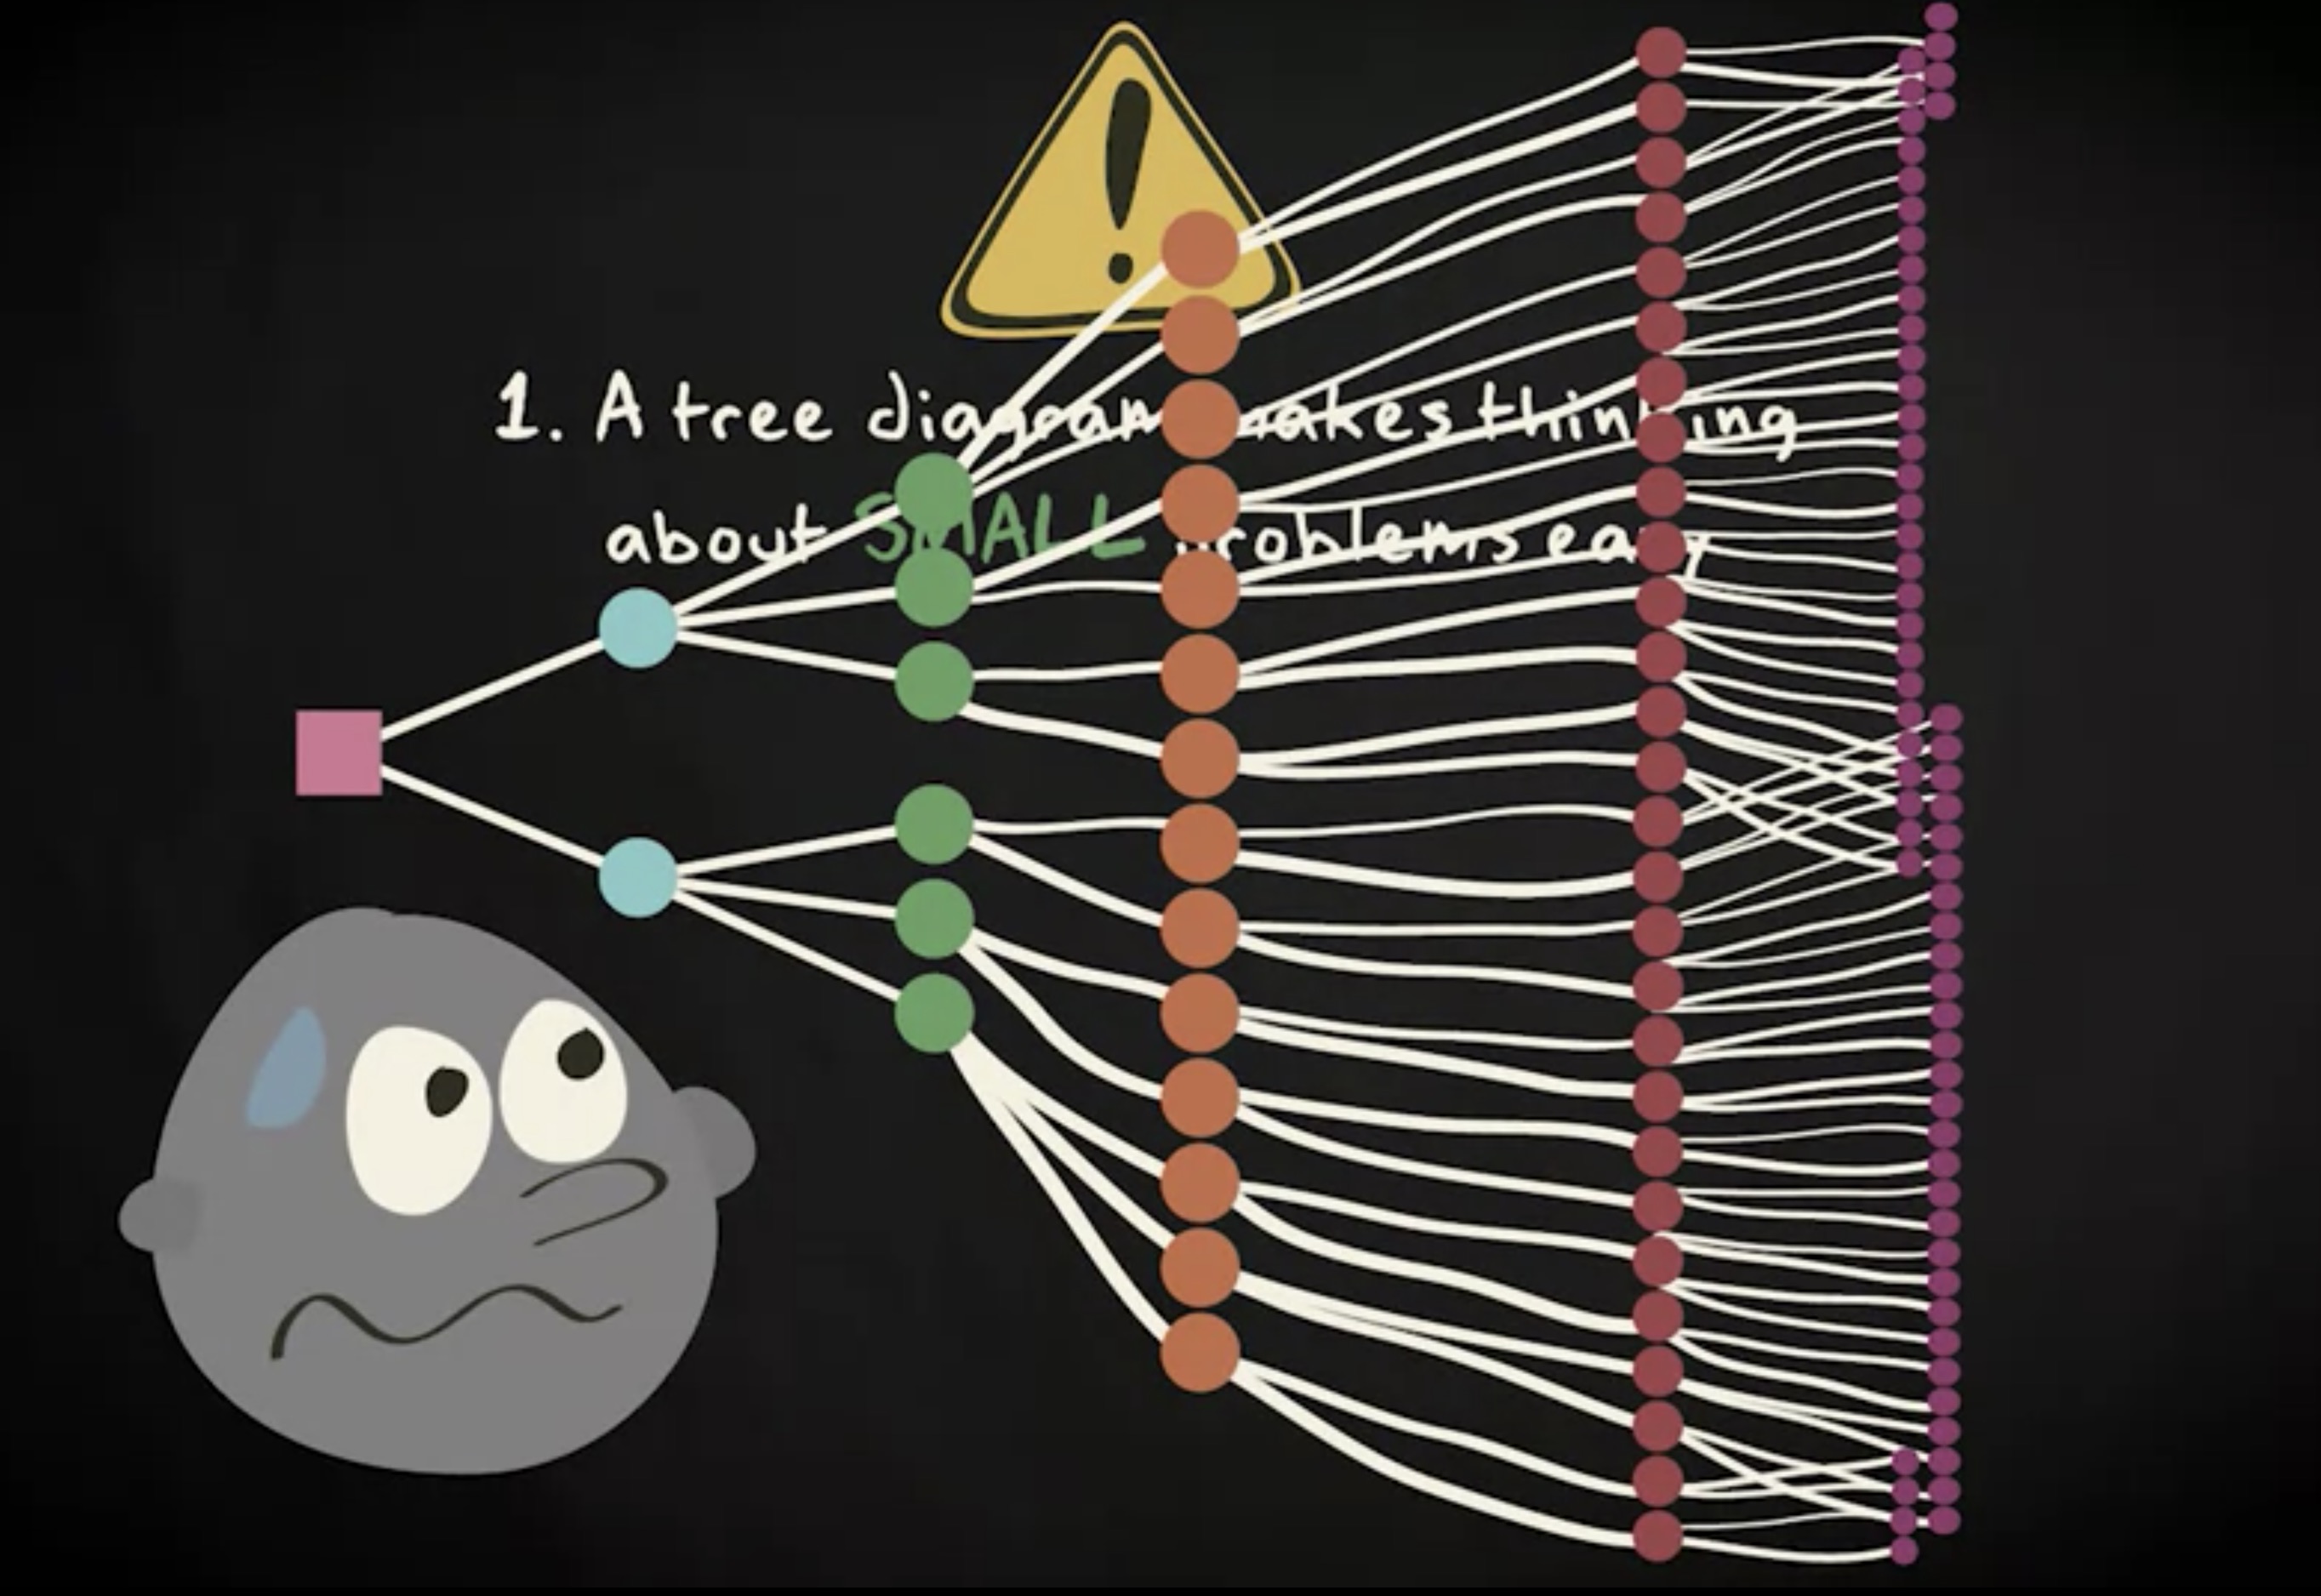 1. A tree diagram makes thinking
about SMALL problems easy